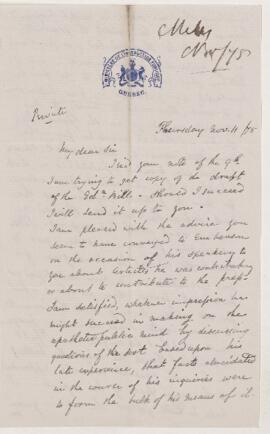 Meles
Nov/75
MINISTRY OF PUBLIC INSTRUCTION
QUEBEC.
Private
Thursday Nov. 11/75
My dear Sir
I had your note of the 9th
I am trying to get copy of the draft
of the Edn Bill. Should I succeed
I will send it up to you.
I am pleased with the advice you
seem to have conveyed to
on the occasion of his speaking to
you about articles he was contributing
or about to contribute to the press
I am satisfied, whatever impression he
might succeed in making on the
apathetic public mind by discussing
questions of the sort based upon his
late experience, that facts elucidated
in the course of his inquiries were
to form the bulk of his means of it.